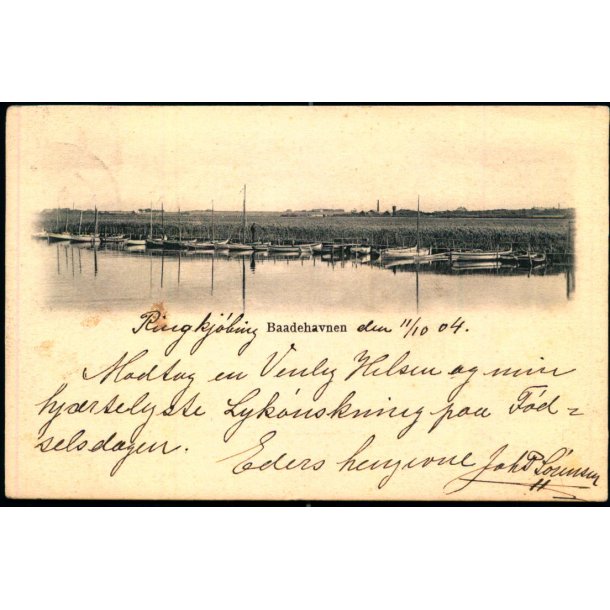 Ringkjöbing Baadehavnen den 11/10 04.
Modtag en Venlig Hilsen og min
hjærtelgste Lykönskning paa Föd=
selsdagen.
Eders hengivne Joh P Sörensen